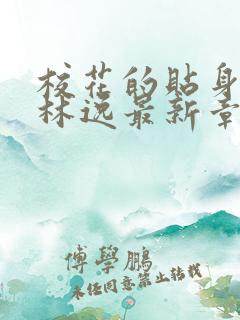 校花的贴身
林逸最新章
傅學鵬
未经同意禁止转载